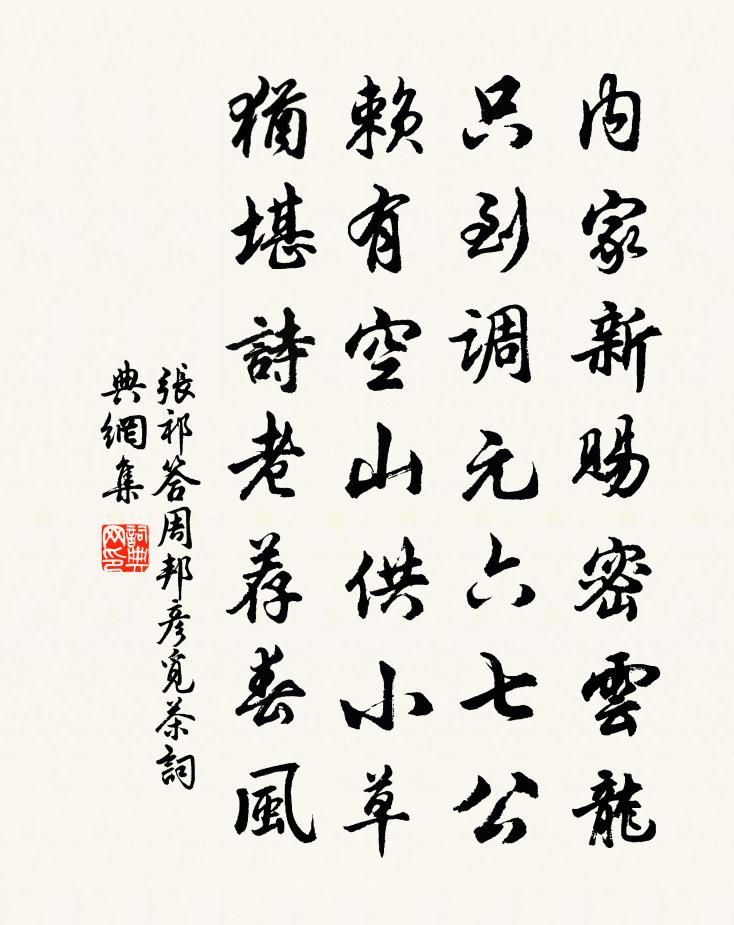 内家新賜密雲龍
只到调元六七公
賴有空山供小草
猶堪詩老荐春風
張祁答周邦彦覓茶詞
典網集
詞典网印